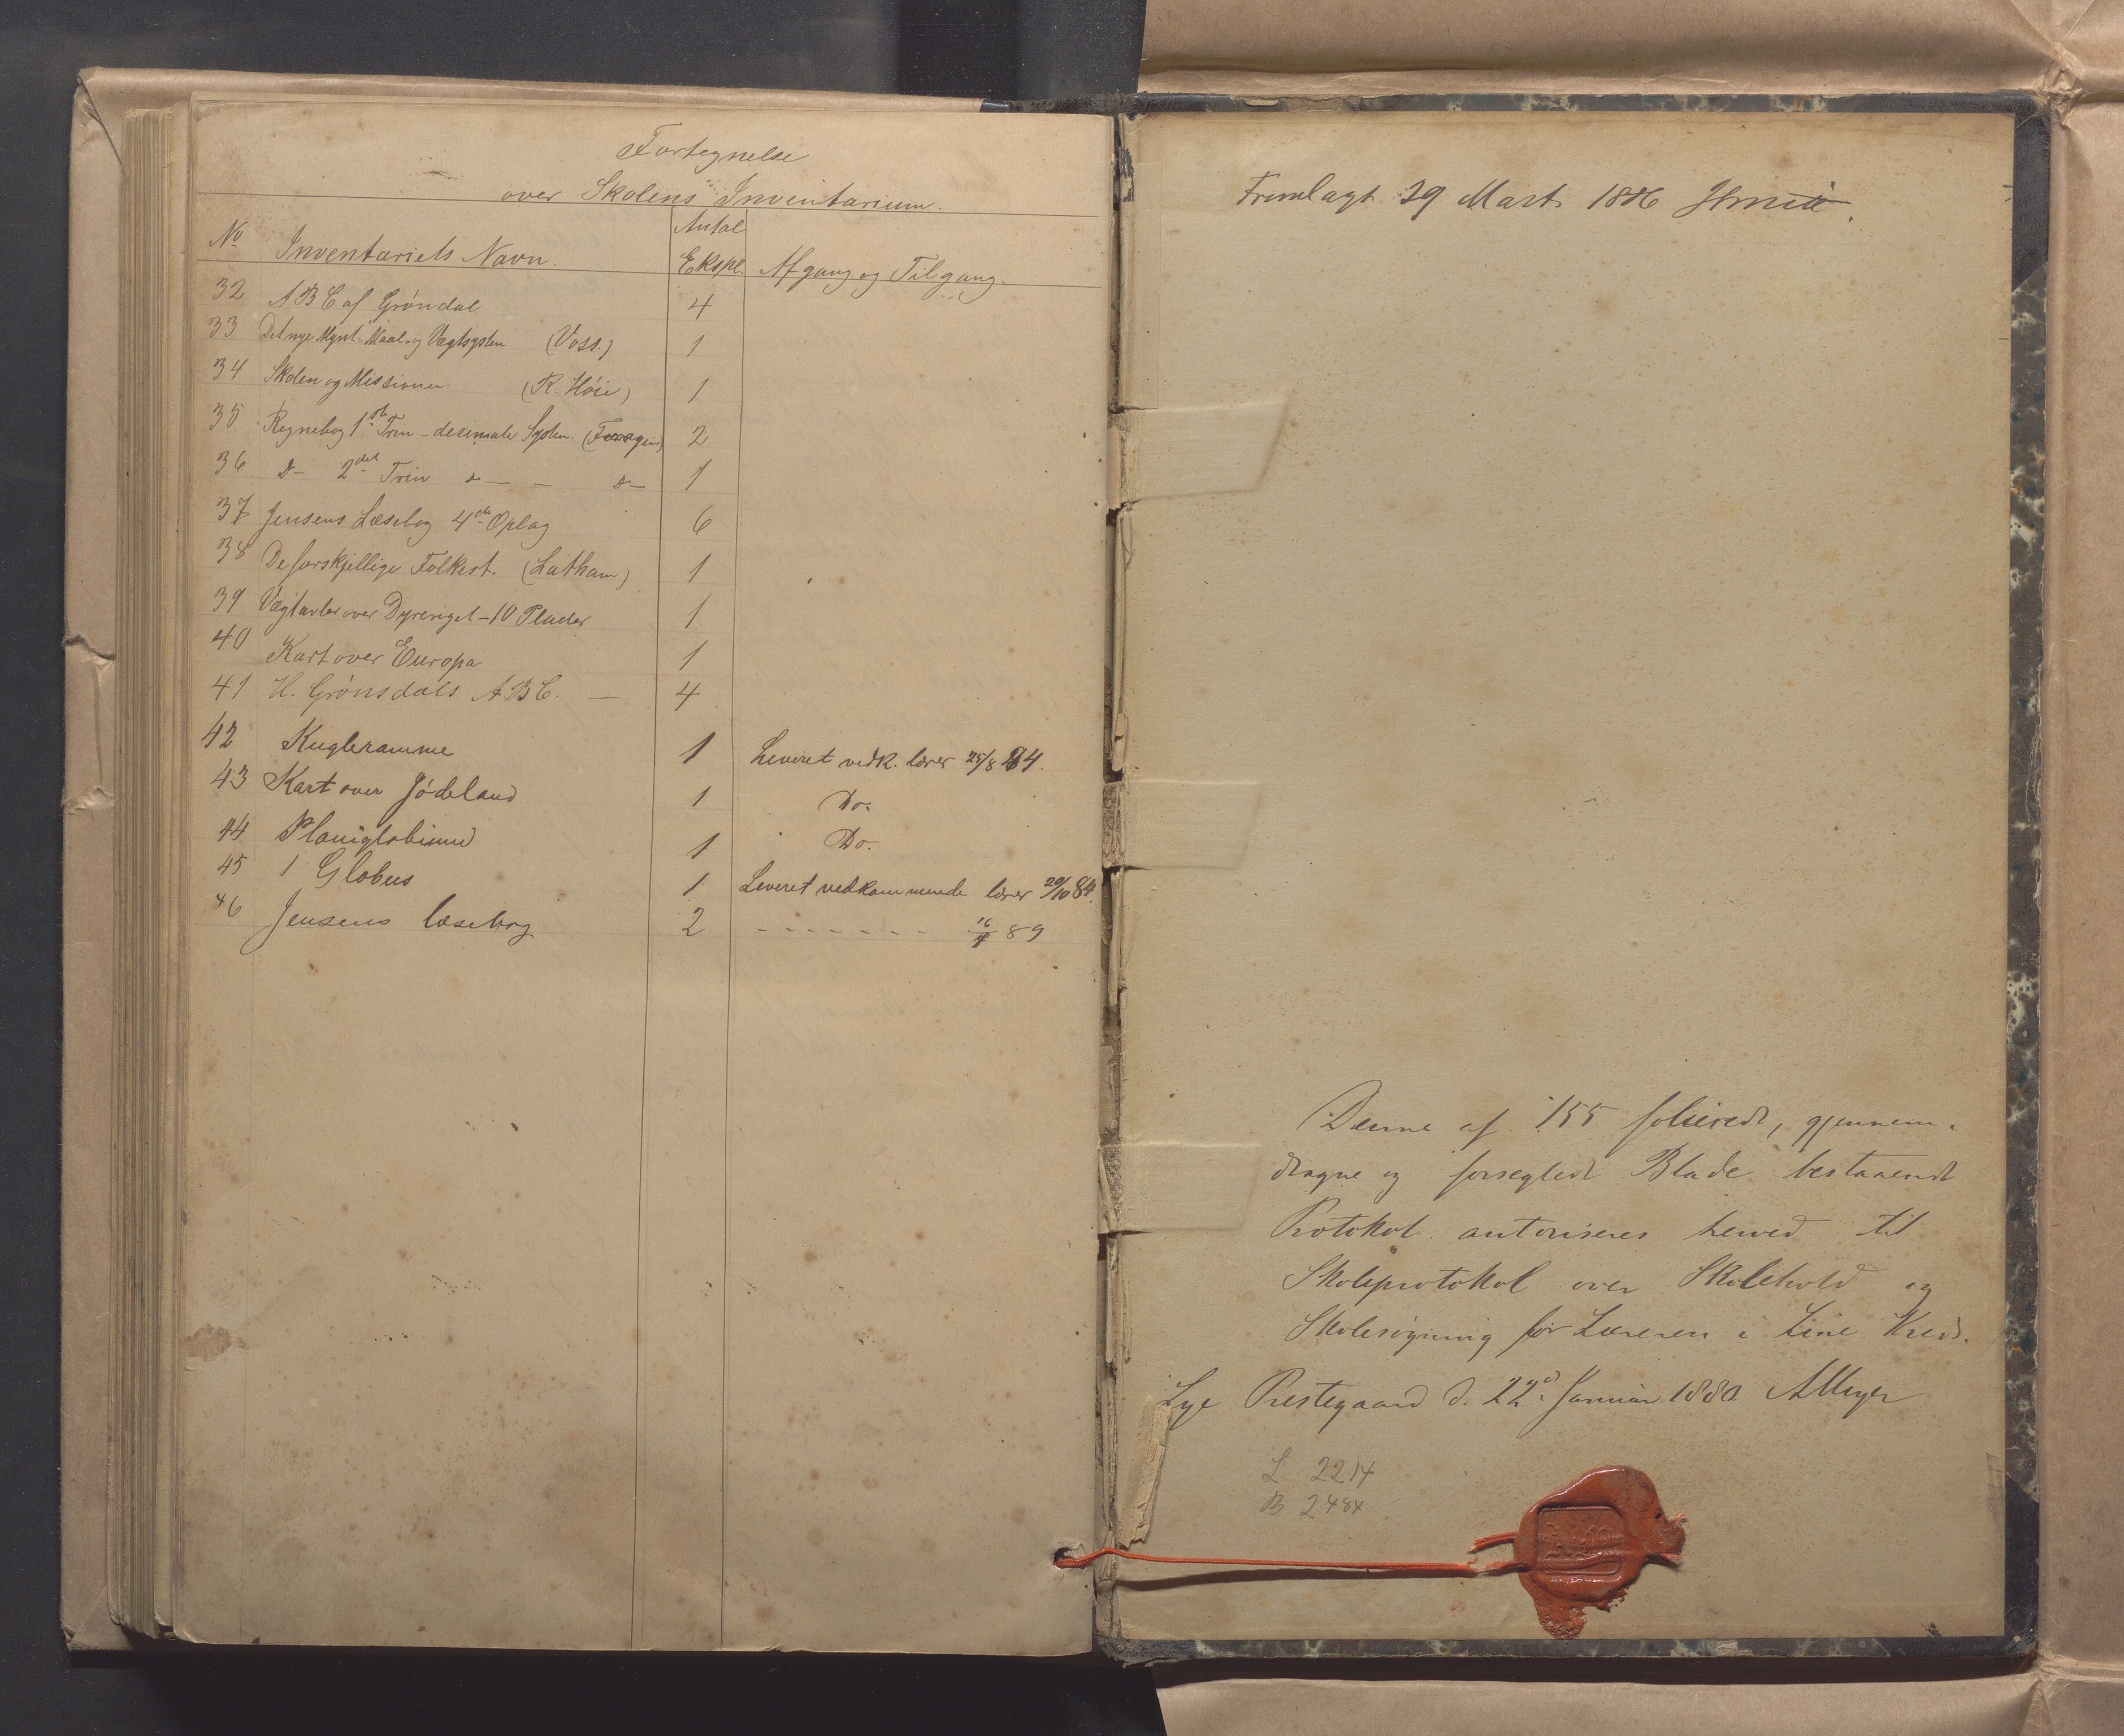 Fortegnelse
over Skolens Inventarium.
No Inventariets Navn. Antal Expl. Afgang og Tilgang.
32 ABC af Gröndal 4
33 Det nye Mynt- Maal- og Vægtsystem (Voss.) 1
34 Skolen og Missionen (R. Höie) 1
35 Regnebog 1ste Trin - decimale System. 2
36 Do 2det Trin do — - do 1
37 Jensens Læsebog 4de Oplag 6
38 De forskjellige Folkest. (Latham) 1
39 over Dyreriget - 10 Plader 1
40 Kart over Europa 1
41 H. Grönsdals ABC. — 4
42 Kugleramme 1 Leveret vedk. lærer 25/8 84.
43 Kart over Jödeland 1 Do.
44 Planiglobium 1 Do.
45 1 Globus 1 Leveret vedkommende lærer 20/10 84.
46 Jensens læsebog 2 - - - - - - - 89
Fremlagt 29 Marts 1886
Denne af 155 folierede, gjennem-
dragne og forseglede Blade bestaaende
Protokol autoriseres herved til
Skoleprotokol over Skolehold og
Skolesögning for Læreren i Line Kreds.
Lye Prestegaard d. 22de Januar 1880 AMeyer
L 2214
B 2484